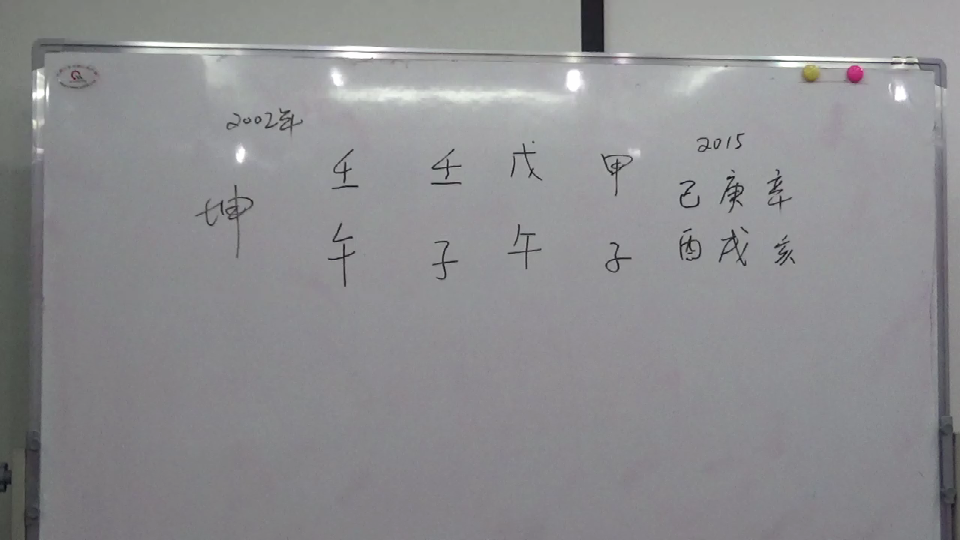 2002年
坤 壬 壬 戊 甲
午 子 午 子
2015
己 庚 辛
酉 戌 亥